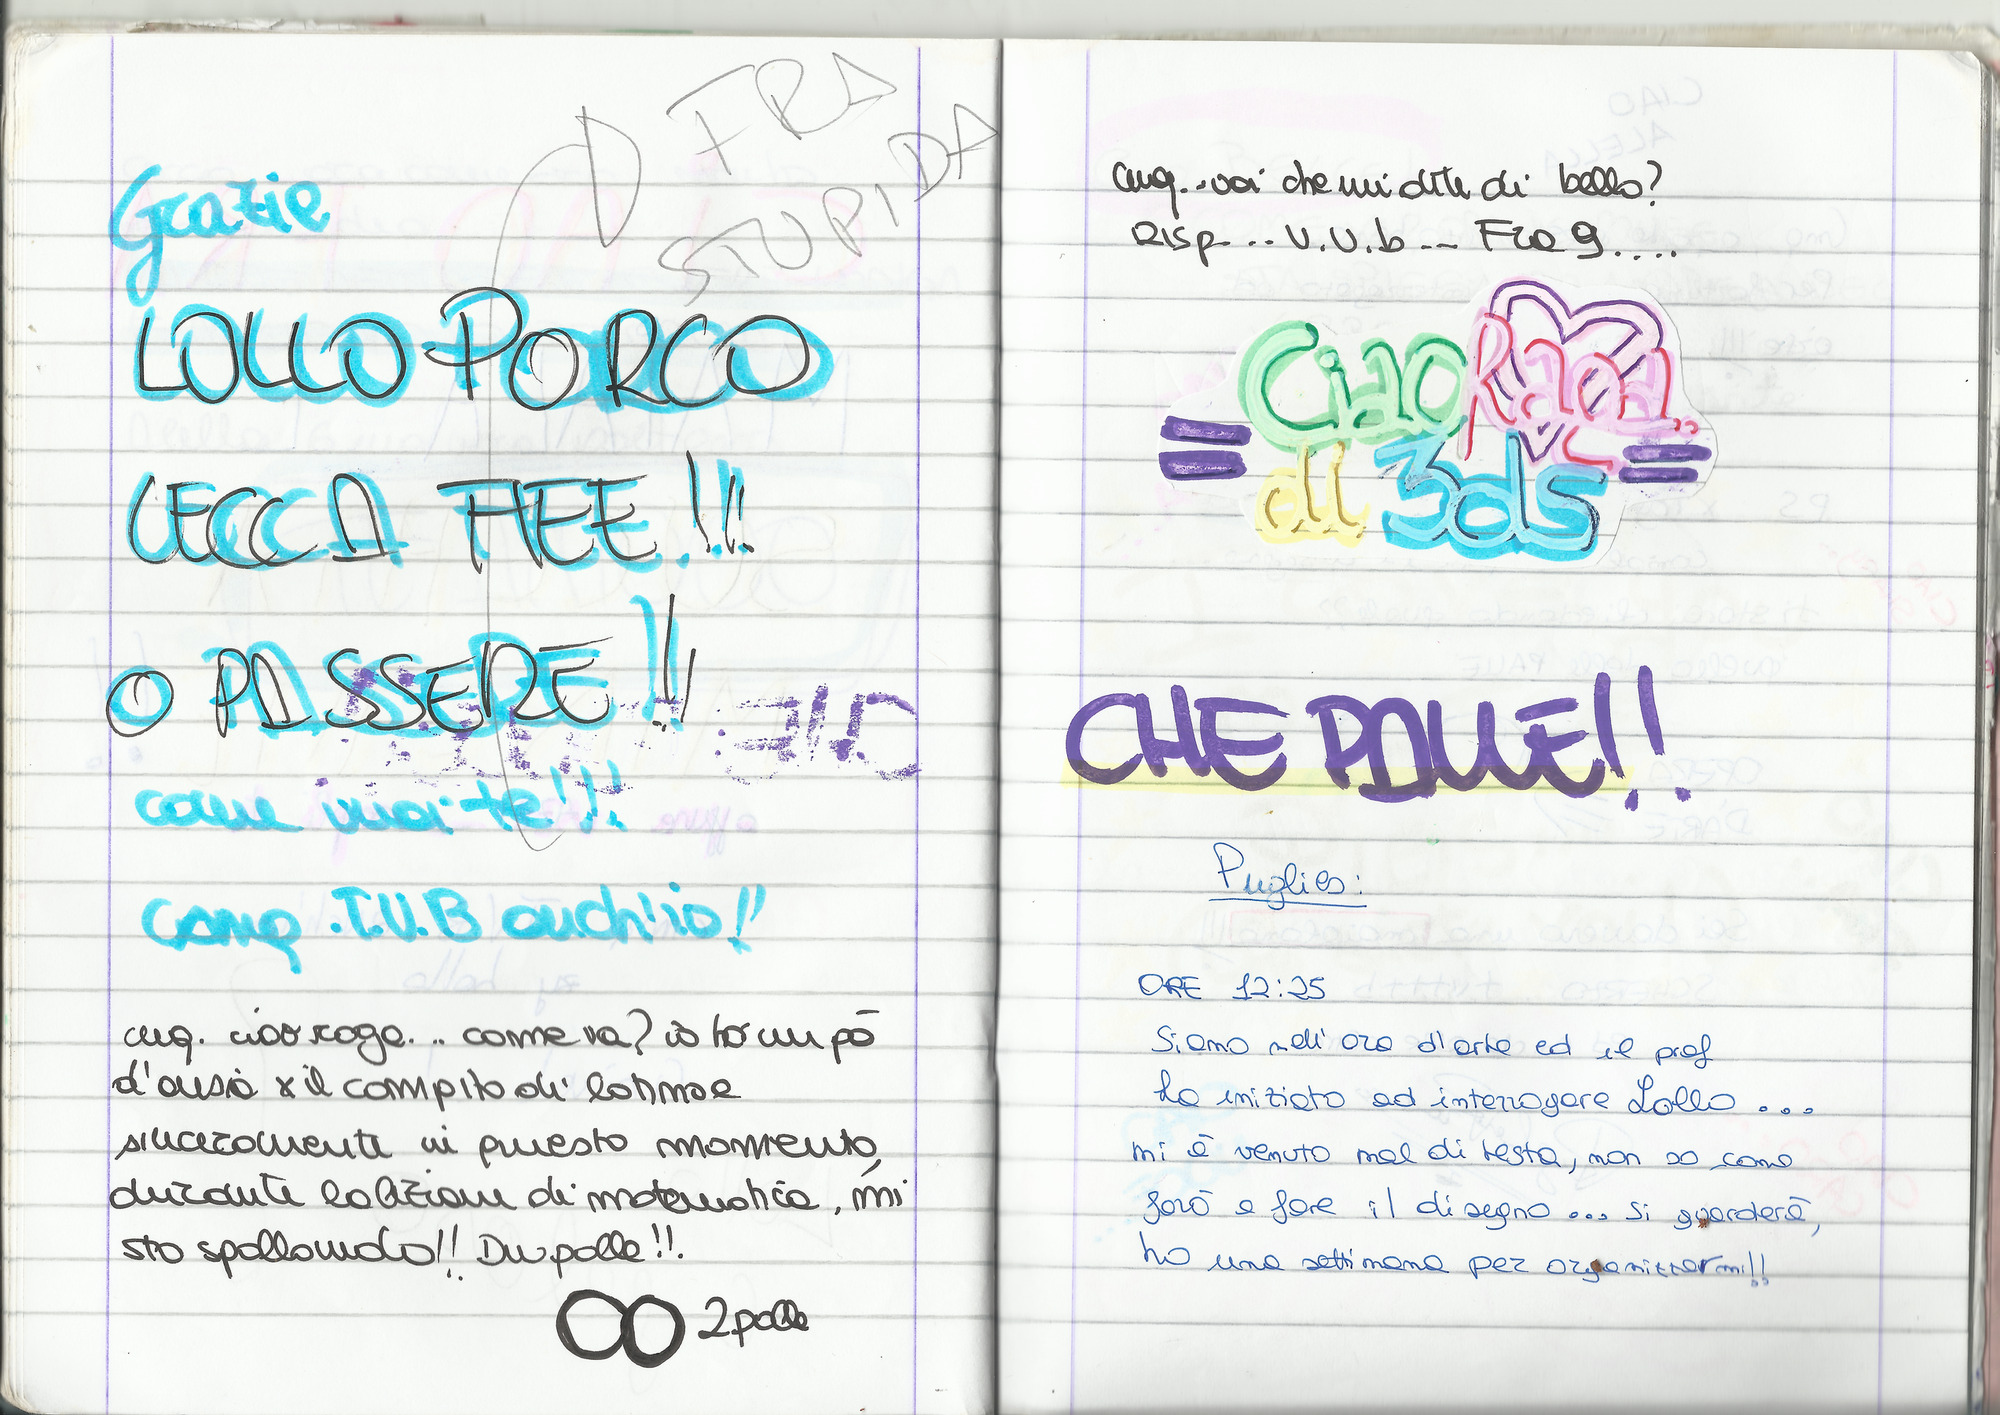 FRA
STUPIDA
Grazie
LOLLO PORCO
LECCA FIEE!!!
O PASSERE!!
come vuoi te!!!
Comq. T.V.B anch'io!!
cmq. ciao raga... come va? io ho un pò
d'ansia x il compito di latino e
sinceramente in questo momento,
durante la lezione di matematica, mi
sto spallando!! Du palle!!.
2 palle
cmq...voi che mi dite di bello?
RISP... V.V.b... Fra g....
Ciao Raga..
all 3ds
CHE PALLE!!
Puglies:
ORE 12:25
Siamo nell'ora d'arte ed il prof
ha iniziato ad interrogare Lollo...
mi è venuto mal di testa, non so come
farò a fare il disegno... si guarderà,
ho una settimana per organizzarmi!!